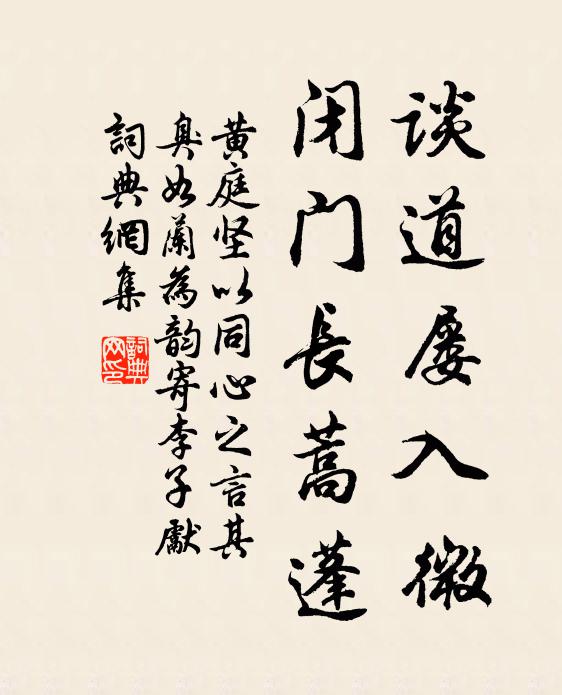 谈道屡入微
闭门长蒿蓬
黄庭坚以同心之言其
臭如蘭為韵寄李子獻
詞典網集
詞典网印